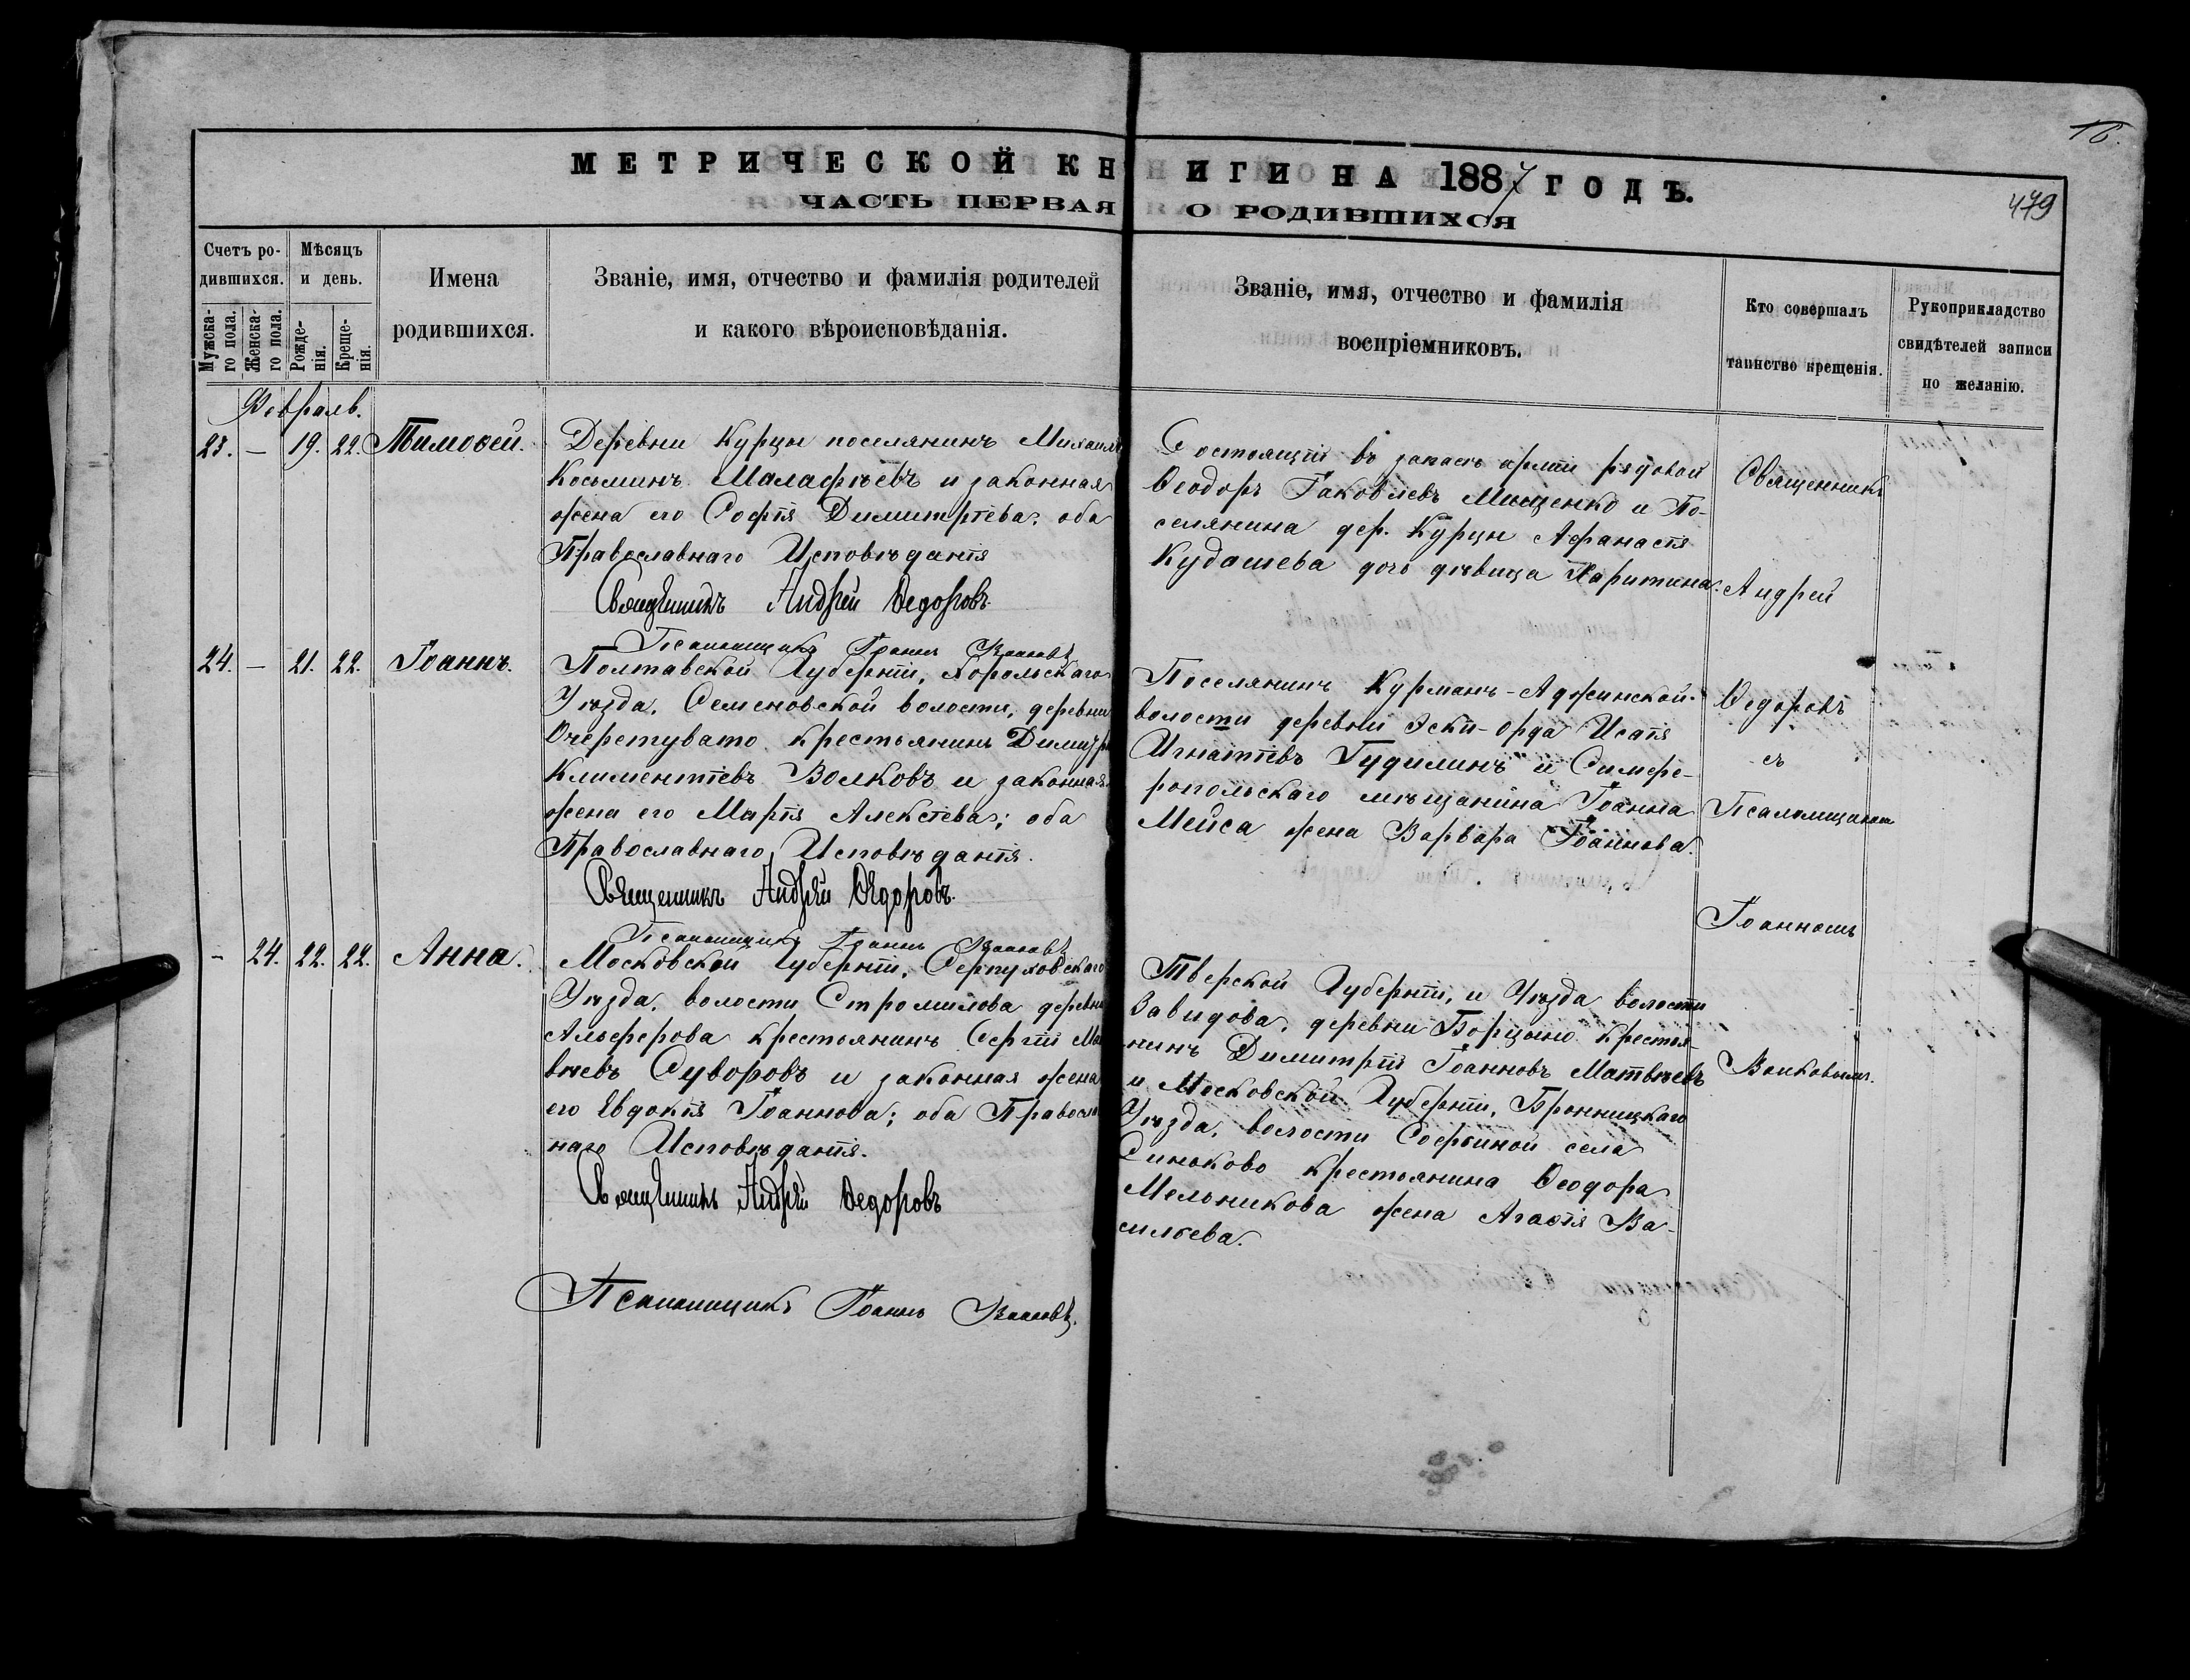 16.
МЕТРИЧЕСКОЙ КНИГИ НА 1887 ГОДЪ.
479
ЧАСТЬ ПЕРВАЯ О РОДИВШИХСЯ
Счетъ ро-
дившихся.
Мужска-
го пола.
Женска-
го пола.
Мѣсяцъ
и день.
Рожде-
нія.
Креще-
нія.
Имена
родившихся.
Званіе, имя, отчество и фамилія родителей
и какого вѣроисповѣданія.
Званіе, имя, отчество и фамилія
воспріемниковъ.
Кто совершалъ
таинство крещенія.
Рукоприкладство
свидѣтелей записи
по желанію.
Февраль.
23. — 19. 22. Тимоѳей.
Деревни Курцы поселянинъ Михаилъ
Косьминъ Малафѣевъ и законная
жена его Софія Димитріева; оба
Православнаго Исповѣданія
Священникъ Андрей Ѳедоровъ.
Псаломщикъ Іоаннъ Волковъ
Состоящій въ запасѣ арміи рядовой
Ѳеодоръ Іаковлевъ Мищенко и По-
селянина дер. Курцы Афанасія
Кудашева дочь дѣвица Харитина.
24. — 21. 22. Іоаннъ.
Полтавской Губерніи, Хорольскаго
Уѣзда, Семеновской волости, деревни
Очеретувато крестьянинъ Димитр
Климентіевъ Волковъ и законная
жена его Марія Алексіева; оба
Православнаго Исповѣданія.
Священникъ Андрей Ѳедоровъ.
Псаломщикъ Іоаннъ Волковъ
Поселянинъ Курманъ-Аджинской
волости деревни Эски-орда Исаія
Игнатіевъ Гудилинъ и Симфе-
ропольскаго мѣщанина Іоанна
Мейса жена Варвара Іоаннова.
- 24. 22. 22. Анна.
Московской Губерніи, Серпуховскаго
Уѣзда, волости Стромилова деревни
Альферова крестьянинъ Сергій Ма
вѣевъ Суворовъ и законная жена
его Евдокія Іоаннова; оба Правосла
наго Исповѣданія.
Священникъ Андрей Ѳедоровъ
Псаломщикъ Іоаннъ Волковъ.
Тверской Губерніи, и Уѣзда волости
Завидова, деревни Борцыно крестья-
нинъ Димитрій Іоанновъ Матвѣевъ
и Московской Губерніи, Бронницкаго
Уѣзда, волости Софьиной села
Синьково крестьянина Ѳеодора
Мельникова жена Агафія Ва-
сильева.
Священникъ
Андрей
Ѳедоровъ
съ
Псаломщикомъ
Іоанномъ
Волковымъ.